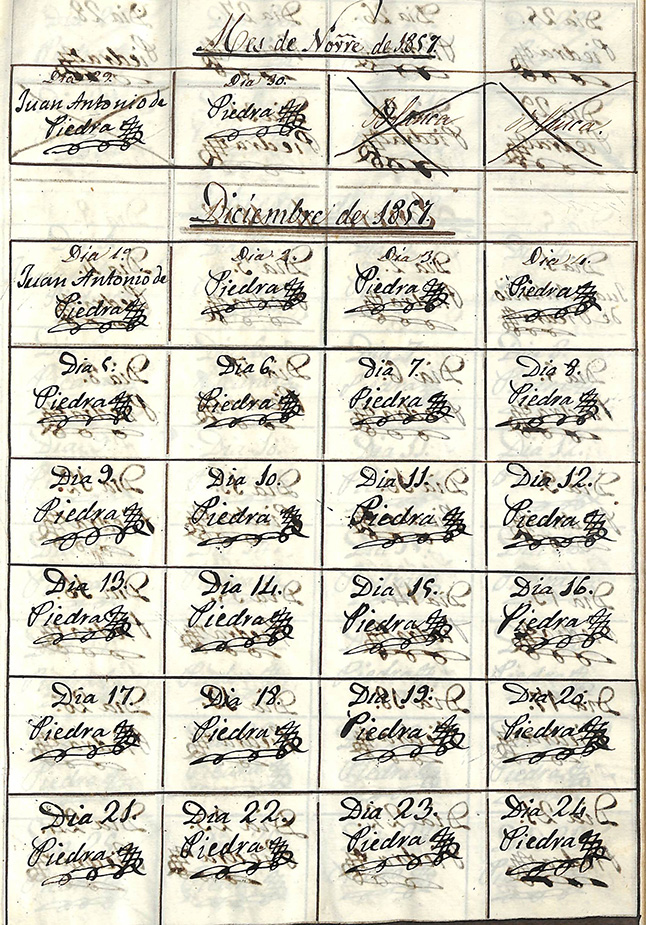 Mes de Norre de 1857.
Dia 29.
Juan Antonio de
Piedra
Dia 30.
Piedra
Diciembre de 1857.
Dia 1º
Juan Antonio de
Piedra
Dia 2.
Piedra
Dia 3.
Piedra
Dia 4.
Piedra
Dia 5.
Piedra
Dia 6.
Piedra
Dia 7.
Piedra
Dia 8.
Piedra
Dia 9.
Piedra
Dia 10.
Piedra
Dia 11.
Piedra
Dia 12.
Piedra
Dia 13.
Piedra
Dia 14.
Piedra
Dia 15.
Piedra
Dia 16.
Piedra
Dia 17.
Piedra
Dia 18.
Piedra
Dia 19.
Piedra
Dia 20.
Piedra
Dia 21.
Piedra
Dia 22.
Piedra
Dia 23.
Piedra
Dia 24.
Piedra